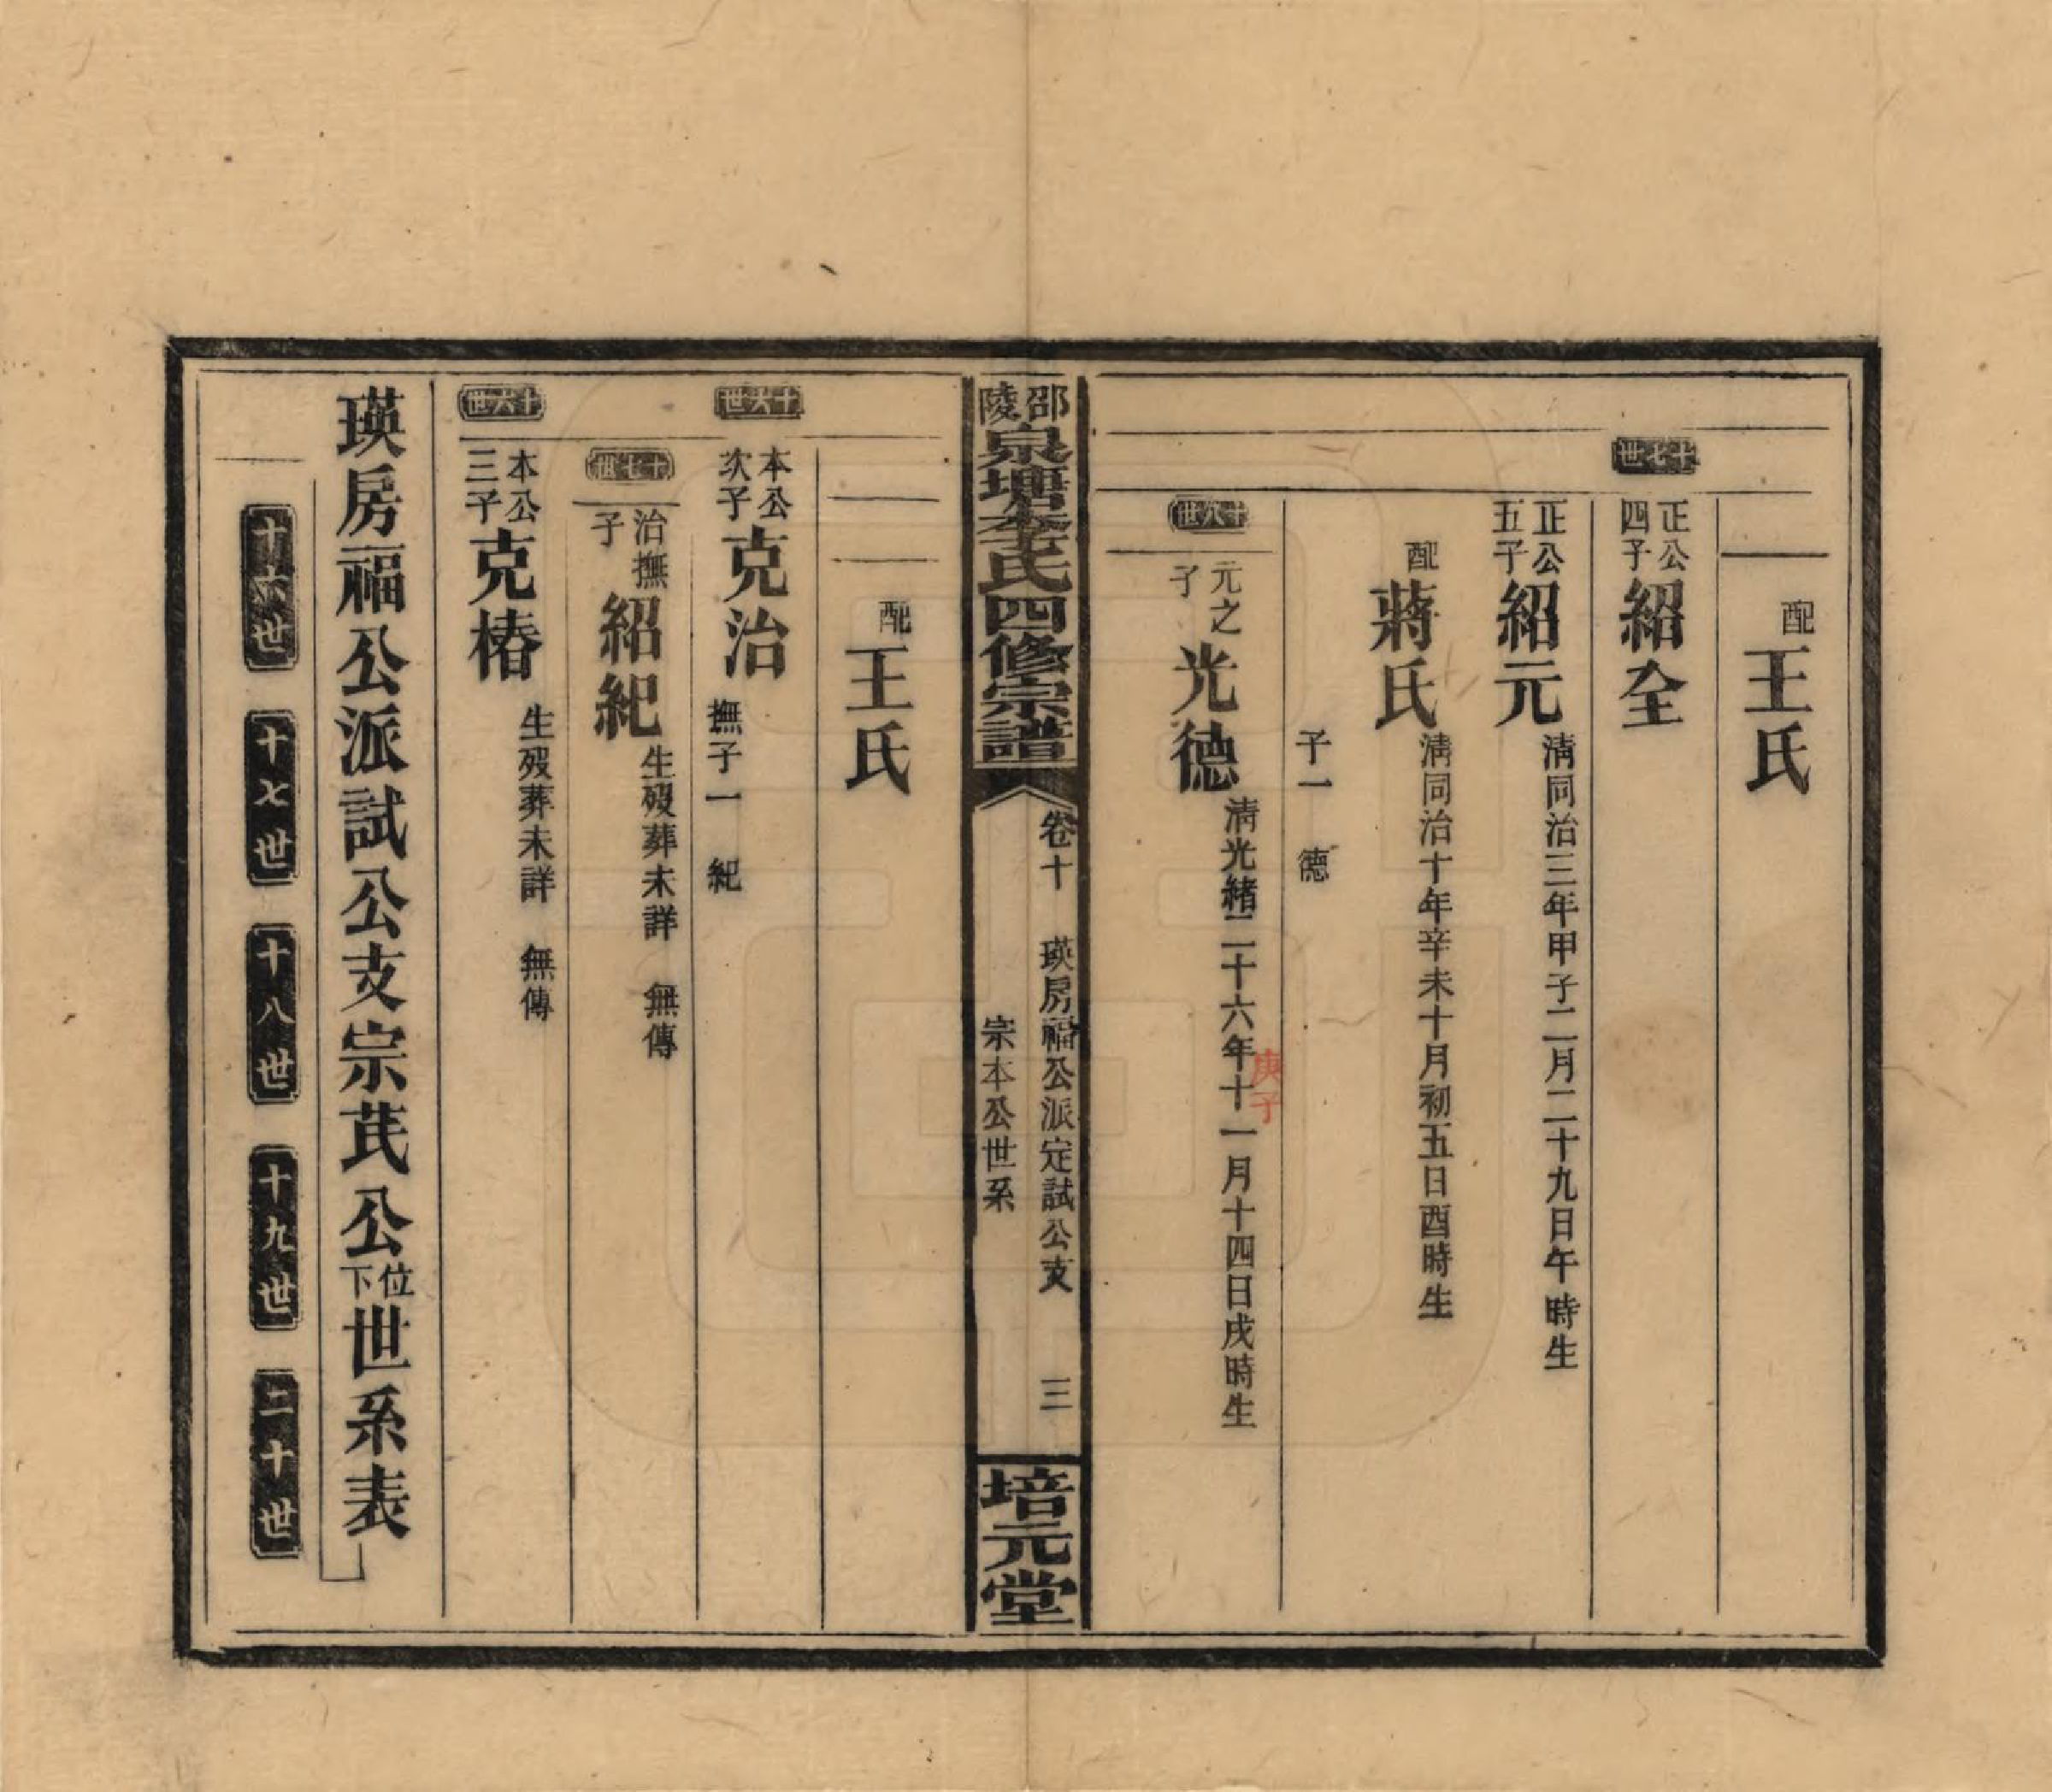 配王氏
十七世
正公四子紹全
正公五子紹元清同治三年甲子二月二十九日午時生
配蔣氏清同治十年辛未十月初五日酉時生
子一 德
十八世
元之子光德清光緒二十六年十一月十四日戌時生
庚子
邵陵泉塘李氏四修宗譜
卷十 瑛房福公派定試公支 三
宗本公世系
培元堂
配王氏
十六世
本公次子克治撫子一 紀
十七世
治撫子紹紀生歿葬未詳 無傳
十六世
本公三子克椿生歿葬未詳 無傳
瑛房福公派試公支宗芪公位下世系表
十六世 十七世 十八世 十九世 二十世